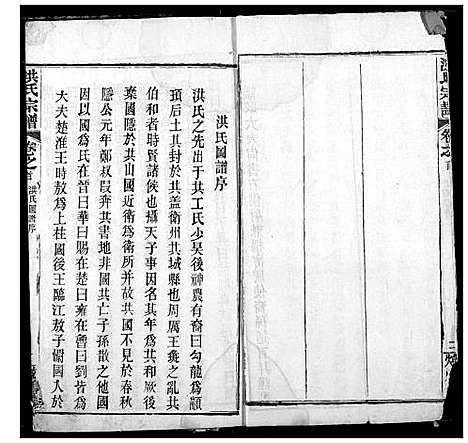 洪氏宗譜
卷之首
洪氏圖譜序
洪氏之先出于共工氏少昊後神農有裔曰勾龍為顓
頊后土其封於共盖衛州共城縣也周厲王彘之亂共
伯和者時賢諸侯也攝天子事因名其年為共和厥後
棄國隱於共山國近衛為衛所并國共不見於春秋
隱公元年鄭叔叚奔共書地非國共亡子孫散之他國
因以國為氏在晉曰華曰賜在楚曰雍在魯曰劉皆為
大夫楚淮王時敖為上柱國後王臨江敖子僩國人於
洪氏宗譜
卷之首
洪氏圖譜序